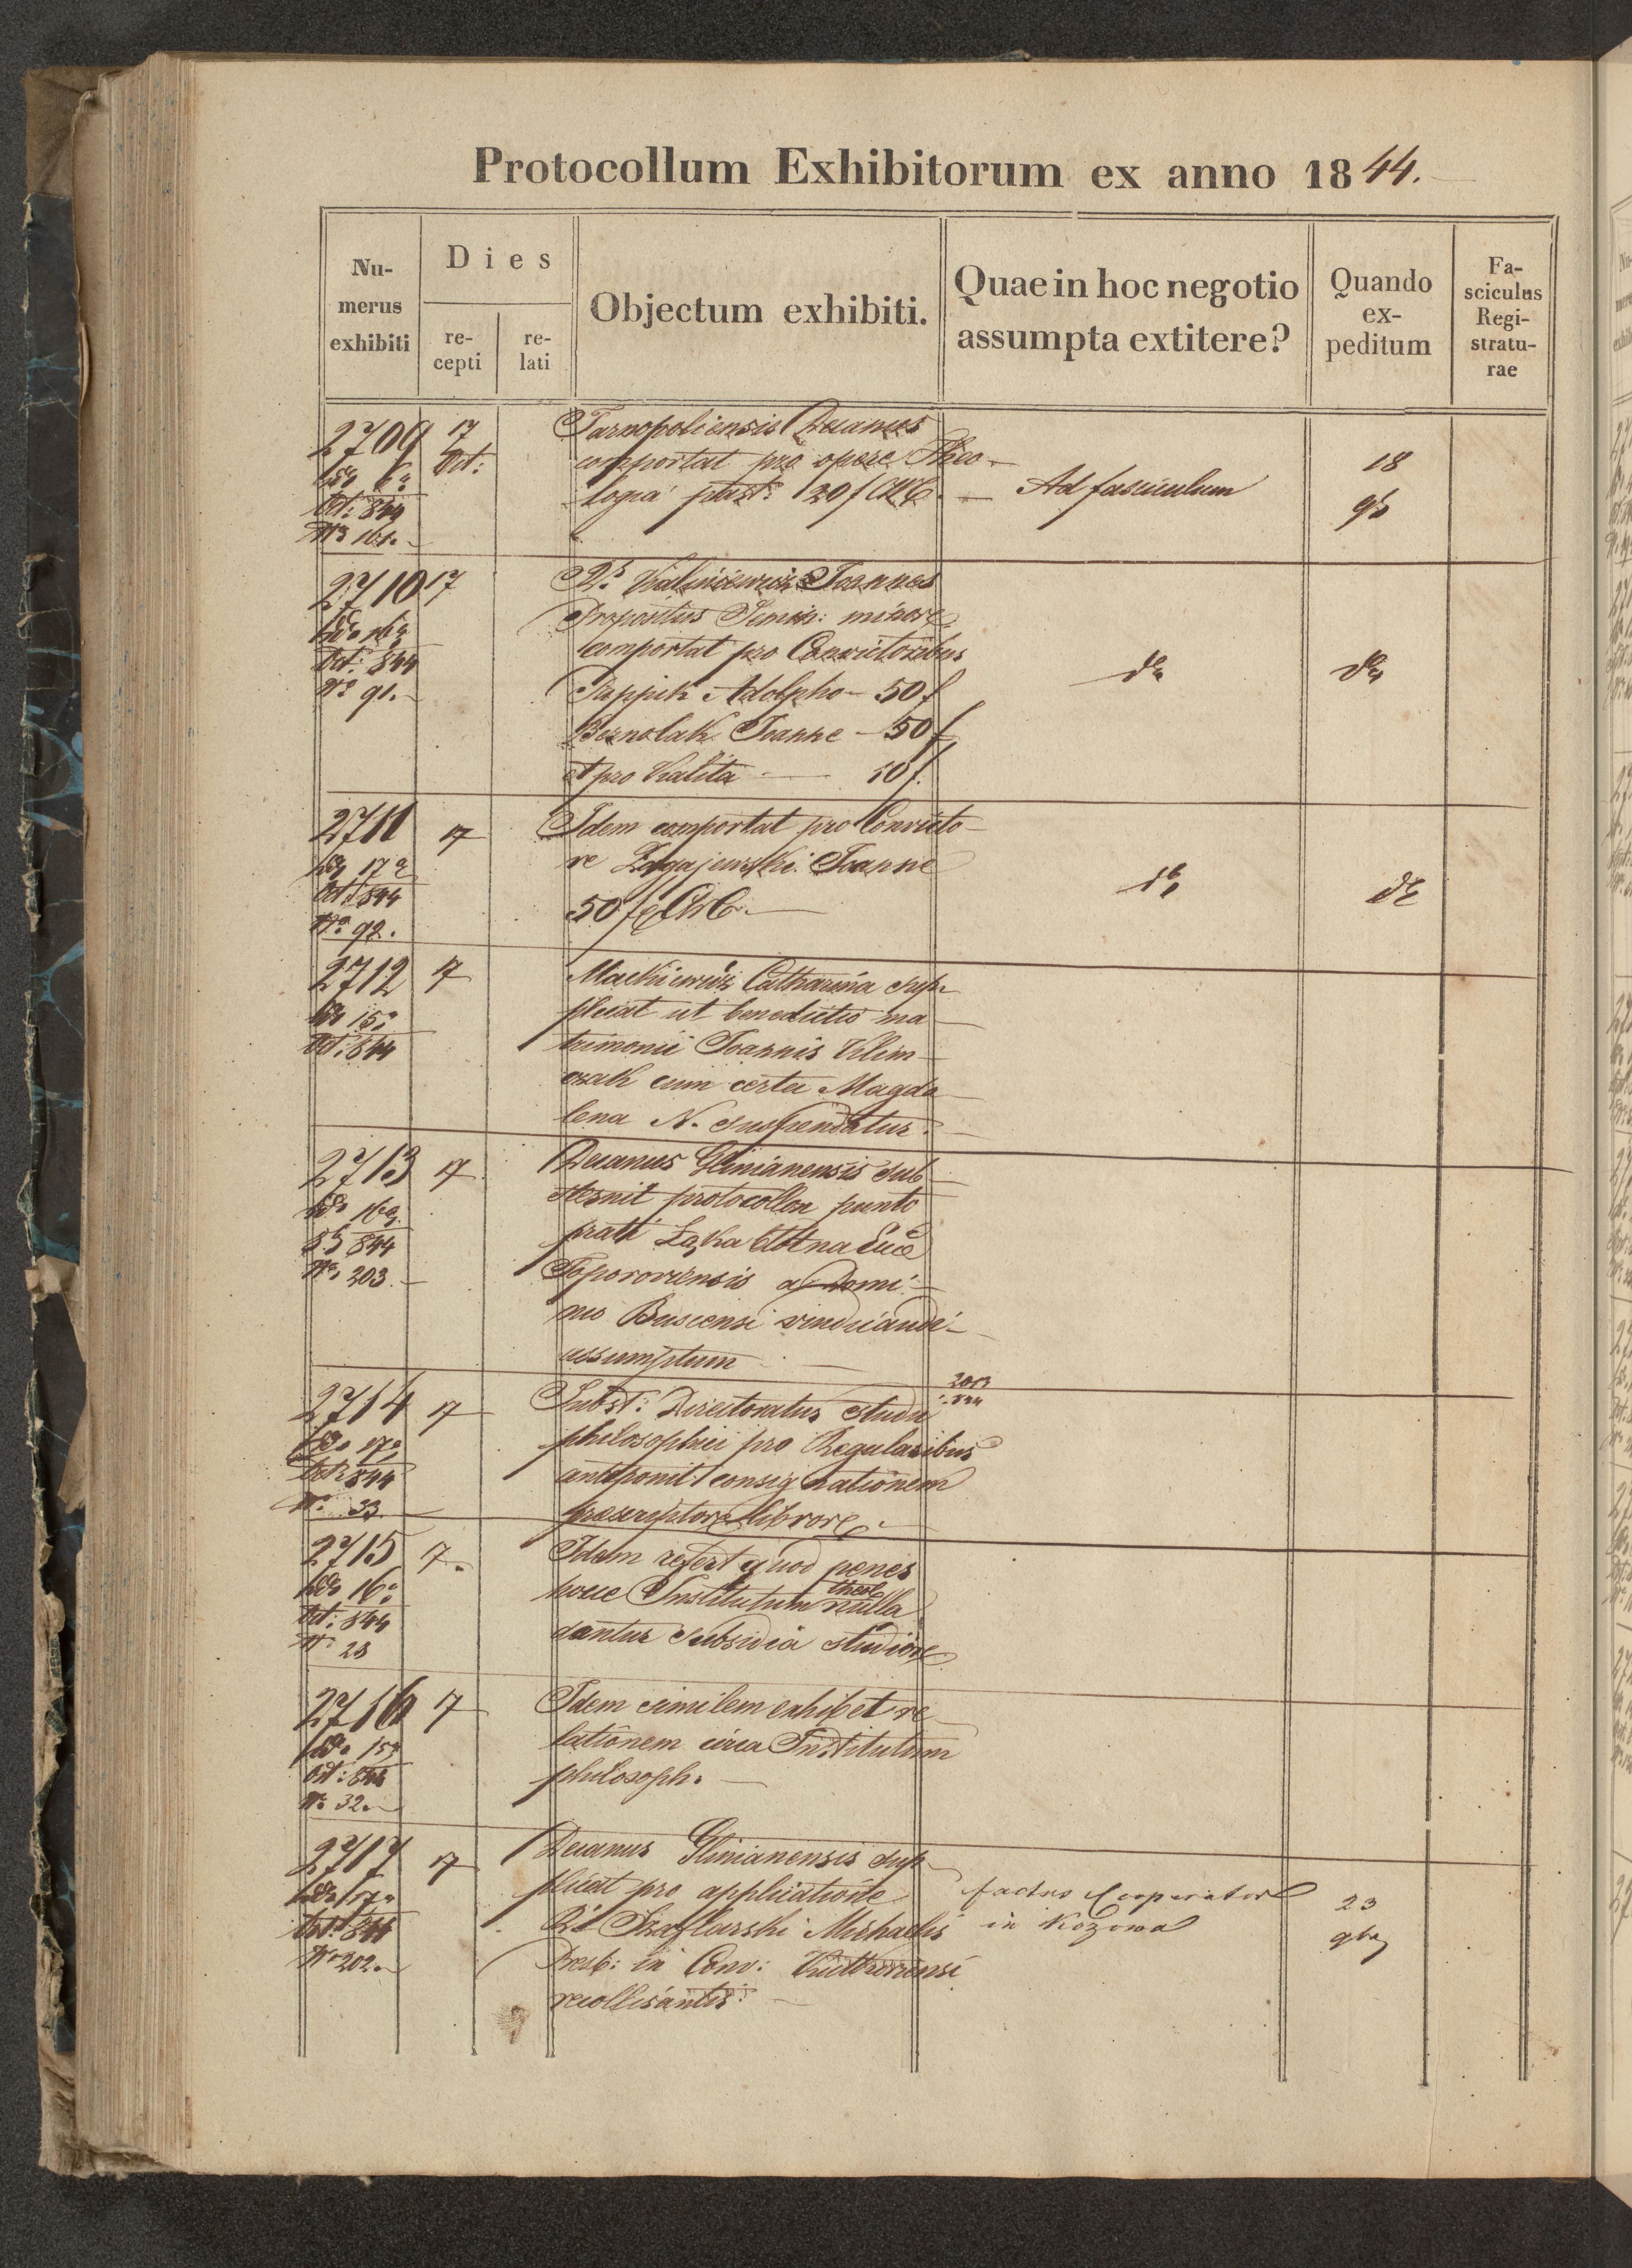 Protocollum Exhibitorum ex anno 1844.
Nu-
merus
exhibiti
Dies
re-
cepti
re-
lati
Objectum exhibiti.
Quae in hoc negotio
assumpta extitere?
Quando
ex-
peditum
Fa-
sciculus
Regi-
stratu-
rae
2709
Oct: 844
No 161.
17
Oct:
Tarnopoliensis Decanus
comportat pro opere Theo-
logia past: 20 f CMC.
Ad fasciculum
18
9b
2710
ddo 16a
Oct: 844
No 91.
17
Joannes
Propositus Semin: minore
comportat pro Convictoribus
Pappik Adolpho - 50 f
Bernolak Joanne - 50 f
et pro Kalita - 50 f.
do
do
2711
ddo 17a
Oct 844
No 92.
17
Idem comportat pro Convicto-
re Zagajewski Joanne
50 f CMC.
do
do
2712
ddo 15a
Oct: 844
17
Mackiewicz Catharina sup-
plicat ut benedictio ma-
trimonii Joannis Klim-
czak cum certa Magda
lena N. suspendatur.
2713
ddo 16a
844
No 203.
17
Decanus Glinianensis sub-
sternit protocollon puncto
prati Łąka
Toporoviensis a Domi-
nio Buscensi vindicandi
assumptum
2714
ddo 17a
Oct 844
No 33
17
Subst: Directoratus studii
philosophici pro Regularibus
anteponit consignationem
praescriptore librore.
844
2715
ddo 16a
Oct: 844
No 28
17.
Idem refert quod penes
hocce Institutum theol nulla
dantur subsidia studiore
2716
ddo 15a
Oct: 844
No 32.
17
Idem similem exhibet re-
lationem circa Institutum
philosoph.
2717
ddo 17a
Oct: 844
No 202.
17
Decanus Glinianensis sup-
plicat pro applicatione
Rd Szaflarski Michaelis
Presb: in Conv:
recollisantis.
factus Cooperator
in Kozowa
23
9b